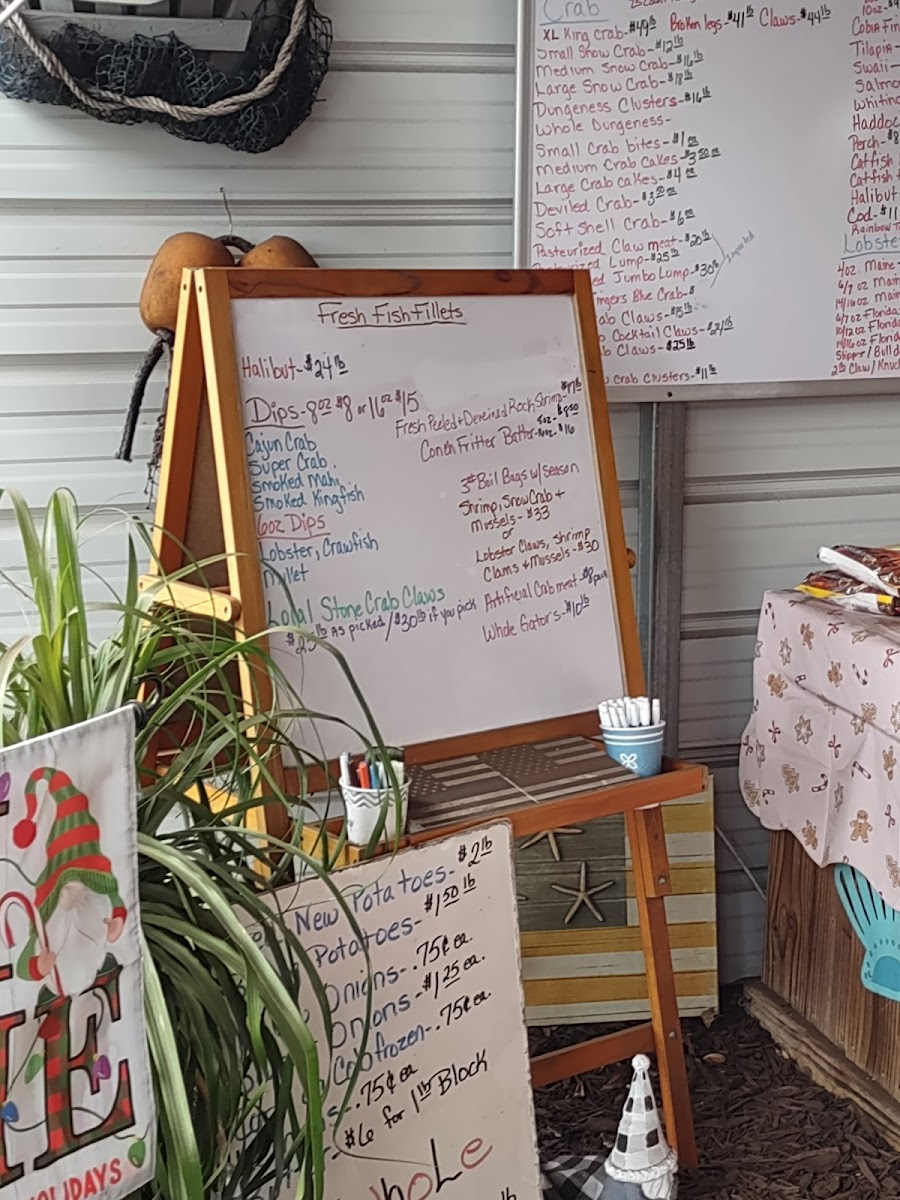 Crab
XL King Crab-$49lb Broken legs-$41lb Claws-$44lb
Small Snow Crab-$12lb
Medium Snow Crab-$16lb
Large Snow Crab-$18lb
Dungeness Clusters-$16lb
Whole Dungeness-
Small Crab bites-$1ea
Medium Crab Cakes-$3.50ea
Large Crab Cakes-$4ea
Deviled Crab-$3.50ea
Soft Shell Crab-$6ea
Pasteurized Claw meat-$20lb
Lump-$25lb
Jumbo Lump-$30lb
Imported
ingers Blue Crab-$
ab Claws-$15lb
Cocktail Claws-$21lb
Claws-$25lb
Crab Clusters-$11lb
10oz
Cobia Fin
Tilapia-
Swaii-
Salmo
Whiting
Haddoc
Perch-$8
Catfish
Catfish
Halibut
Cod-$11
Rainbow T
Lobste
4oz. Maine
6/7 oz Main
14/16oz Main
6/7 oz Florida
10/12oz Florida
14/16oz Flori
Slipper/Bulld
2lb Claw/Knuc
Fresh Fish Fillets
Halibut-$24lb
Dips-8oz $8 or 16oz $15
Cajun Crab
Super Crab
Smoked Mahi
Smoked Kingfish
6oz Dips
Lobster, Crawfish
Mullet
Local Stone Crab Claws
$25lb As picked/$30lb if you pick
Fresh Peeled+Deveined Rock Shrimp-$17lb
8oz-$8.50
Conch Fritter Batter-16oz-$16
3# Boil Bags w/Season
Shrimp, Snow Crab +
Mussels-$33
or
Lobster Claws, Shrimp
Clams + Mussels-$30
Artificial Crab meat-$8pack
Whole Gators-$10lb
New Potatoes-$2lb
Potatoes-$1.50 lb
Onions-.75¢ ea.
Onions-$1.25 ea.
Cob frozen-.75¢ ea.
s-.75¢ ea
-$6 for 1lb Block
Whole
lb
E
HOLIDAYS